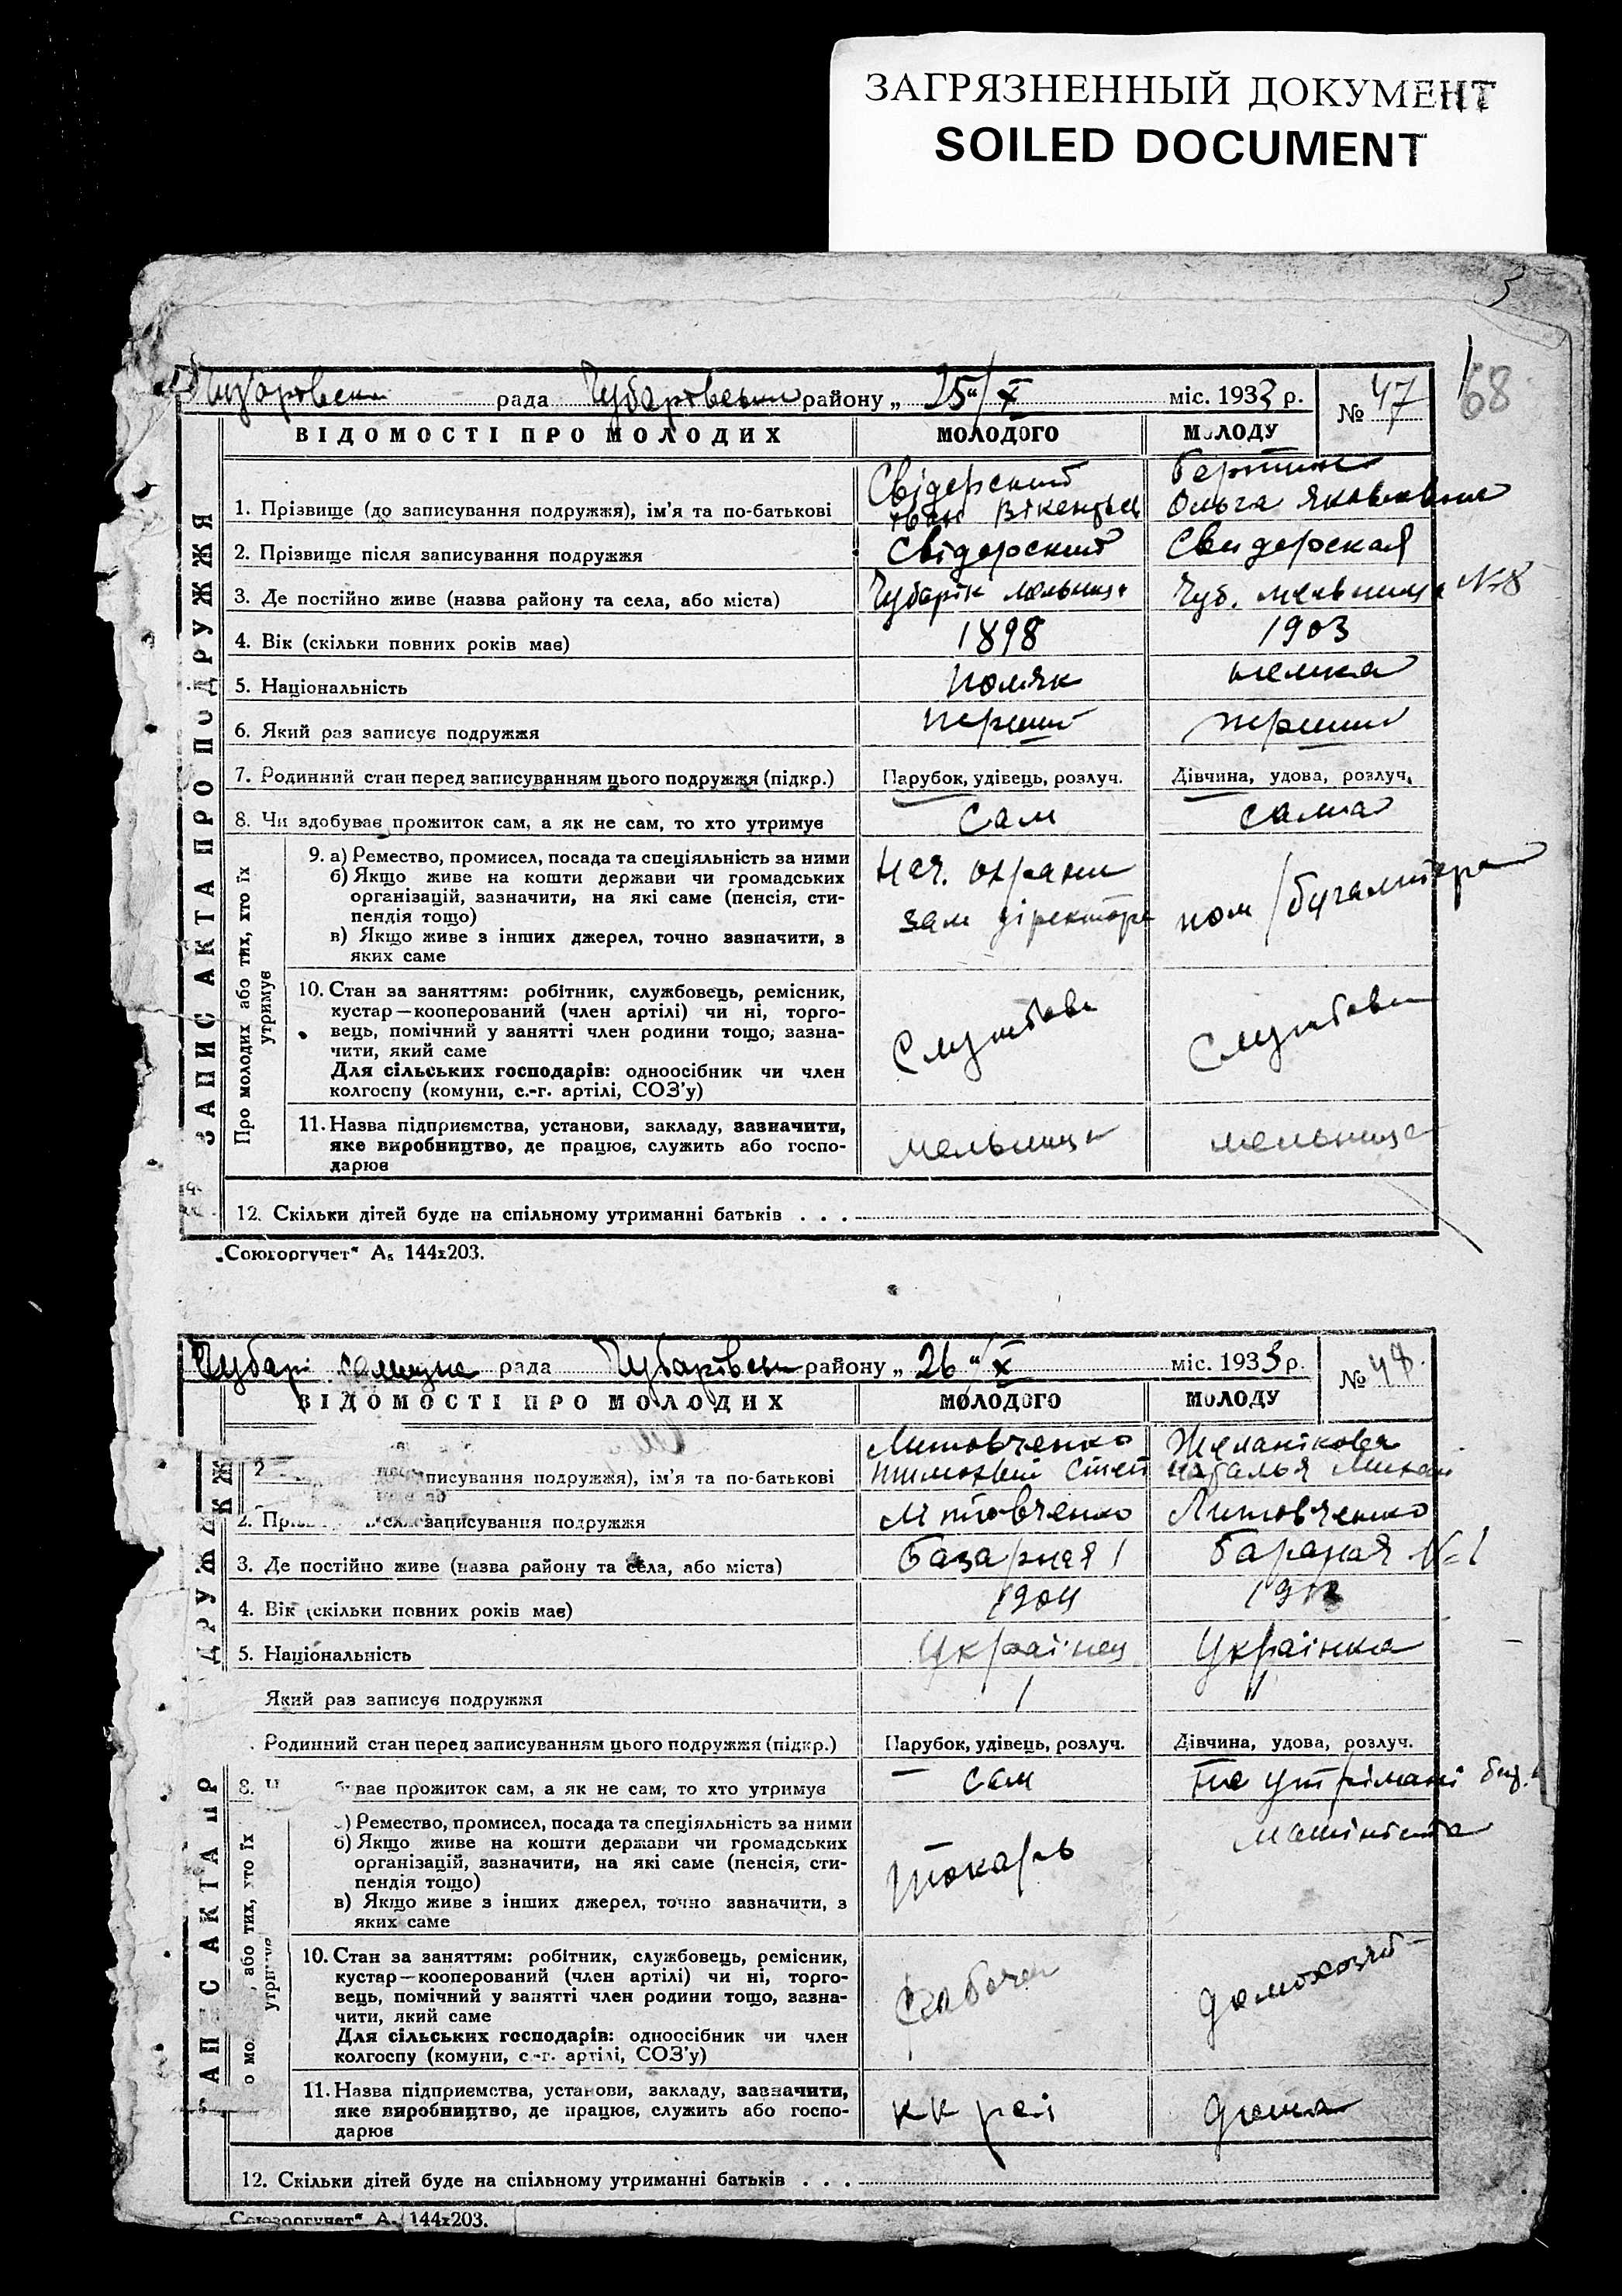 ЗАГРЯЗНЕННЫЙ ДОКУМЕНТ
SOILED DOCUMENT
3
68
рада Чубаровськ району „ 25 "/X міс. 1933 р. № 47
ВІДОМОСТІ ПРО МОЛОДИХ МОЛОДОГО МОЛОДУ
ЗАПИС АКТА ПРО ПОДРУЖЖЯ
1. Прізвище (до записування подружжя), ім'я та по-батькові Свідерский Іван Ольга Яковлевна
2. Прізвище після записування подружжя Свідерский Свидерская
3. Де постійно живе (назва району та села, або міста) мельниця Чуб. мельниця №8
4. Вік (скільки повних років має) 1898 1903
5. Національність поляк немка
6. Який раз записує подружжя перший перший
7. Родинний стан перед записуванням цього подружжя (підкр.) Парубок, удівець, розлуч. Дівчина, удова, розлуч.
8. Чи здобуває прожиток сам, а як не сам, то хто утримує сам сама
Про молодих або тих, хто їх утримує
9. а) Ремество, промисел, посада та спеціяльність за ними Нач. охрани
б) Якщо живе на кошти держави чи громадських
організацій, зазначити, на які саме (пенсія, сти- зам діректора пом/бугалтера
пендія тощо)
в) Якщо живе з інших джерел, точно зазначити, з
яких саме
10. Стан за заняттям: робітник, службовець, ремісник,
кустар—кооперований (член артілі) чи ні, торго-
вець, помічний у занятті член родини тощо, зазна- Службовц Службовц
чити, який саме
Для сільських господарів: одноосібник чи член
колгоспу (комуни, с.-г. артілі, СОЗ'у)
11. Назва підприємства, установи, закладу, зазначити,
яке виробництво, де працює, служить або госпо- мельниця мельниця
дарює
12. Скільки дітей буде на спільному утриманні батьків . . .
„Союзоргучет" А5 144x203.
Чубарі рада Чубаровськ району „ 26 "/X міс. 1933 р. № 48
ВІДОМОСТІ ПРО МОЛОДИХ МОЛОДОГО МОЛОДУ
писування подружжя), ім'я та по-батькові Литовченко Тимофий Степ Наталья Михай
2. записування подружжя Литовченко Литовченко
3. Де постійно живе (назва району та села, або міста) Базарная 1 №1
4. Вік (скільки повних років має) 1904
5. Національність Українец Українка
Який раз записує подружжя 1 1
Родинний стан перед записуванням цього подружжя (підкр.) Парубок, удівець, розлуч. Дівчина, удова, розлуч.
8. ває прожиток сам, а як не сам, то хто утримує сам на утрімані
) Ремество, промисел, посада та спеціяльність за ними
б) Якщо живе на кошти держави чи громадських машініста
організацій, зазначити, на які саме (пенсія, сти- токарь
пендія тощо)
в) Якщо живе з інших джерел, точно зазначити, з
яких саме
10. Стан за заняттям: робітник, службовець, ремісник,
кустар—кооперований (член артілі) чи ні, торго-
вець, помічний у занятті член родини тощо, зазна- домохозяй
чити, який саме
Для сільських господарів: одноосібник чи член
колгоспу (комуни, с.-г. артілі, СОЗ'у)
11. Назва підприємства, установи, закладу, зазначити,
яке виробництво, де працює, служить або госпо- дома
дарює
12. Скільки дітей буде на спільному утриманні батьків . . .
144x203.